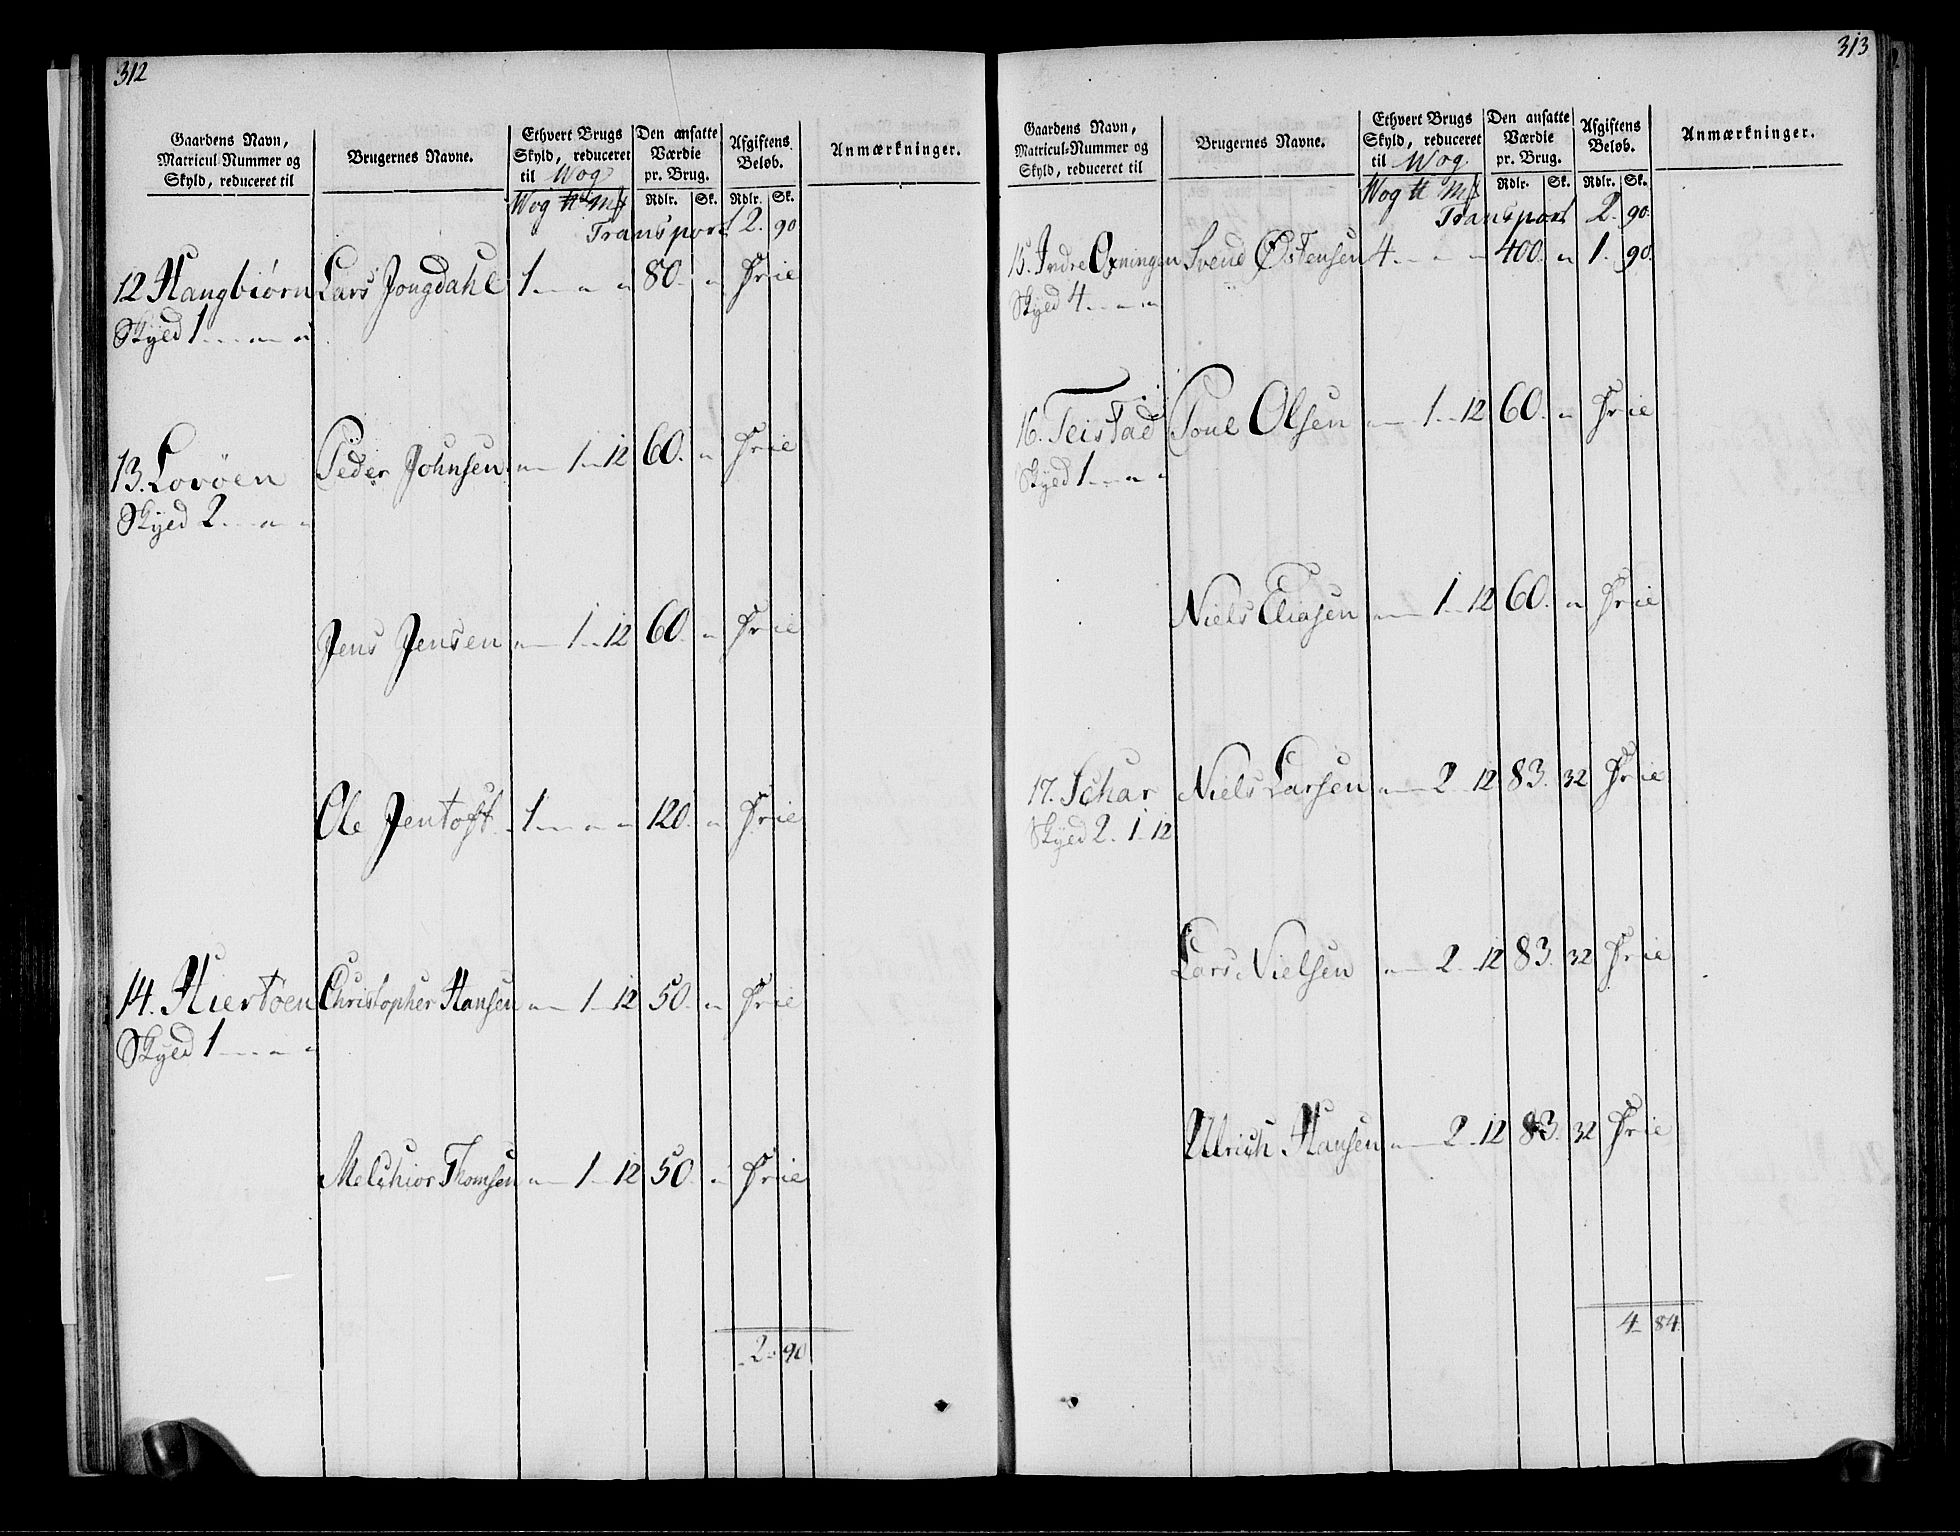 312
Gaardens Navn,
Matricul-Nummer og
Skyld, reduceret til
Brugernes Navne.
Ethvert Brugs
Skyld, reduceret
til Wog
Den ansatte
Værdie
pr. Brug.
Afgiftens
Beløb.
Anmærkninger.
Wog ℔ Mk Rdlr. Sk. Rdlr. Sk.
Transport 2. 90
12 Haugbiørn Lars Jongdahl 1 " " 80. " Frie
Skyld 1 " "
13. Lovøen Peder Johnsen " 1 12 60. " Frie
Skyld 2 " "
Jens Jensen " 1 12 60. " Frie
Ole Jentoft 1 " " 120. " Frie
14. Hiertøen Christopher Hansen " 1 12 50. " Frie
Skyld 1 " "
Melchior Thomsen " 1 12 50. " Frie
2 90
313
Gaardens Navn,
Matricul-Nummer og
Skyld, reduceret til
Brugernes Navne.
Ethvert Brugs
Skyld, reduceret
til Wog
Den ansatte
Værdie
pr. Brug.
Afgiftens
Beløb.
Anmærkninger.
Wog ℔ Mk Rdlr. Sk. Rdlr. Sk.
Transport 2. 90.
15. Indre Oxningen Svend Østensen 4 " " 400. " 1. 90.
Skyld 4 " "
16. Teistad Poul Olsen " 1 12 60. " Frie
Skyld 1 " "
Niels Eliasen " 1 12 60. " Frie
17. Schar Niels Larsen " 2 12 83. 32 Frie
Skyld 2. 1 12
Lars Nielsen " 2 12 83. 32 Frie
Ulrich Hansen " 2 12 83. 32 Frie
4 84